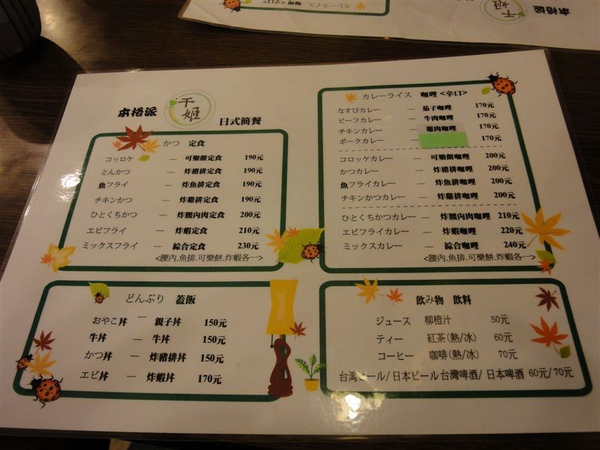 本格派 千姬 日式簡餐
かつ 定食
コッロケ — 可樂餅定食 190元
とんかつ — 炸豬排定食 190元
魚フライ — 炸魚排定食 190元
チキンかつ — 炸雞排定食 190元
ひとくちかつ — 炸腰內肉定食 200元
エビフライ — 炸蝦定食 210元
ミックスフライ — 綜合定食 230元
<腰內、魚排、可樂餅、炸蝦各一>
カレーライス 咖哩 <辛口>
なすびカレー — 茄子咖哩 170元
ビーフカレー — 牛肉咖哩 170元
チキンカレー — 雞肉咖哩 170元
ポークカレー — 170元
コロッケカレー — 可樂餅咖哩 200元
かつカレー — 炸豬排咖哩 200元
魚フライカレー — 炸魚排咖哩 200元
チキンかつカレー — 炸雞排咖哩 200元
ひとくちかつカレー — 炸腰內肉咖哩 210元
エビフライカレー — 炸蝦咖哩 220元
ミックスカレー — 綜合咖哩 240元
<腰內、魚排、可樂餅、炸蝦各一>
どんぶり 蓋飯
おやこ丼 — 親子丼 150元
牛丼 — 牛丼 150元
かつ丼 — 炸豬排丼 150元
エビ丼 — 炸蝦丼 170元
飲み物 飲料
ジュース 柳橙汁 50元
ティー 紅茶(熱/冰) 60元
コーヒー 咖啡(熱/冰) 70元
台湾ビール/日本ビール 台灣啤酒/日本啤酒 60元/70元